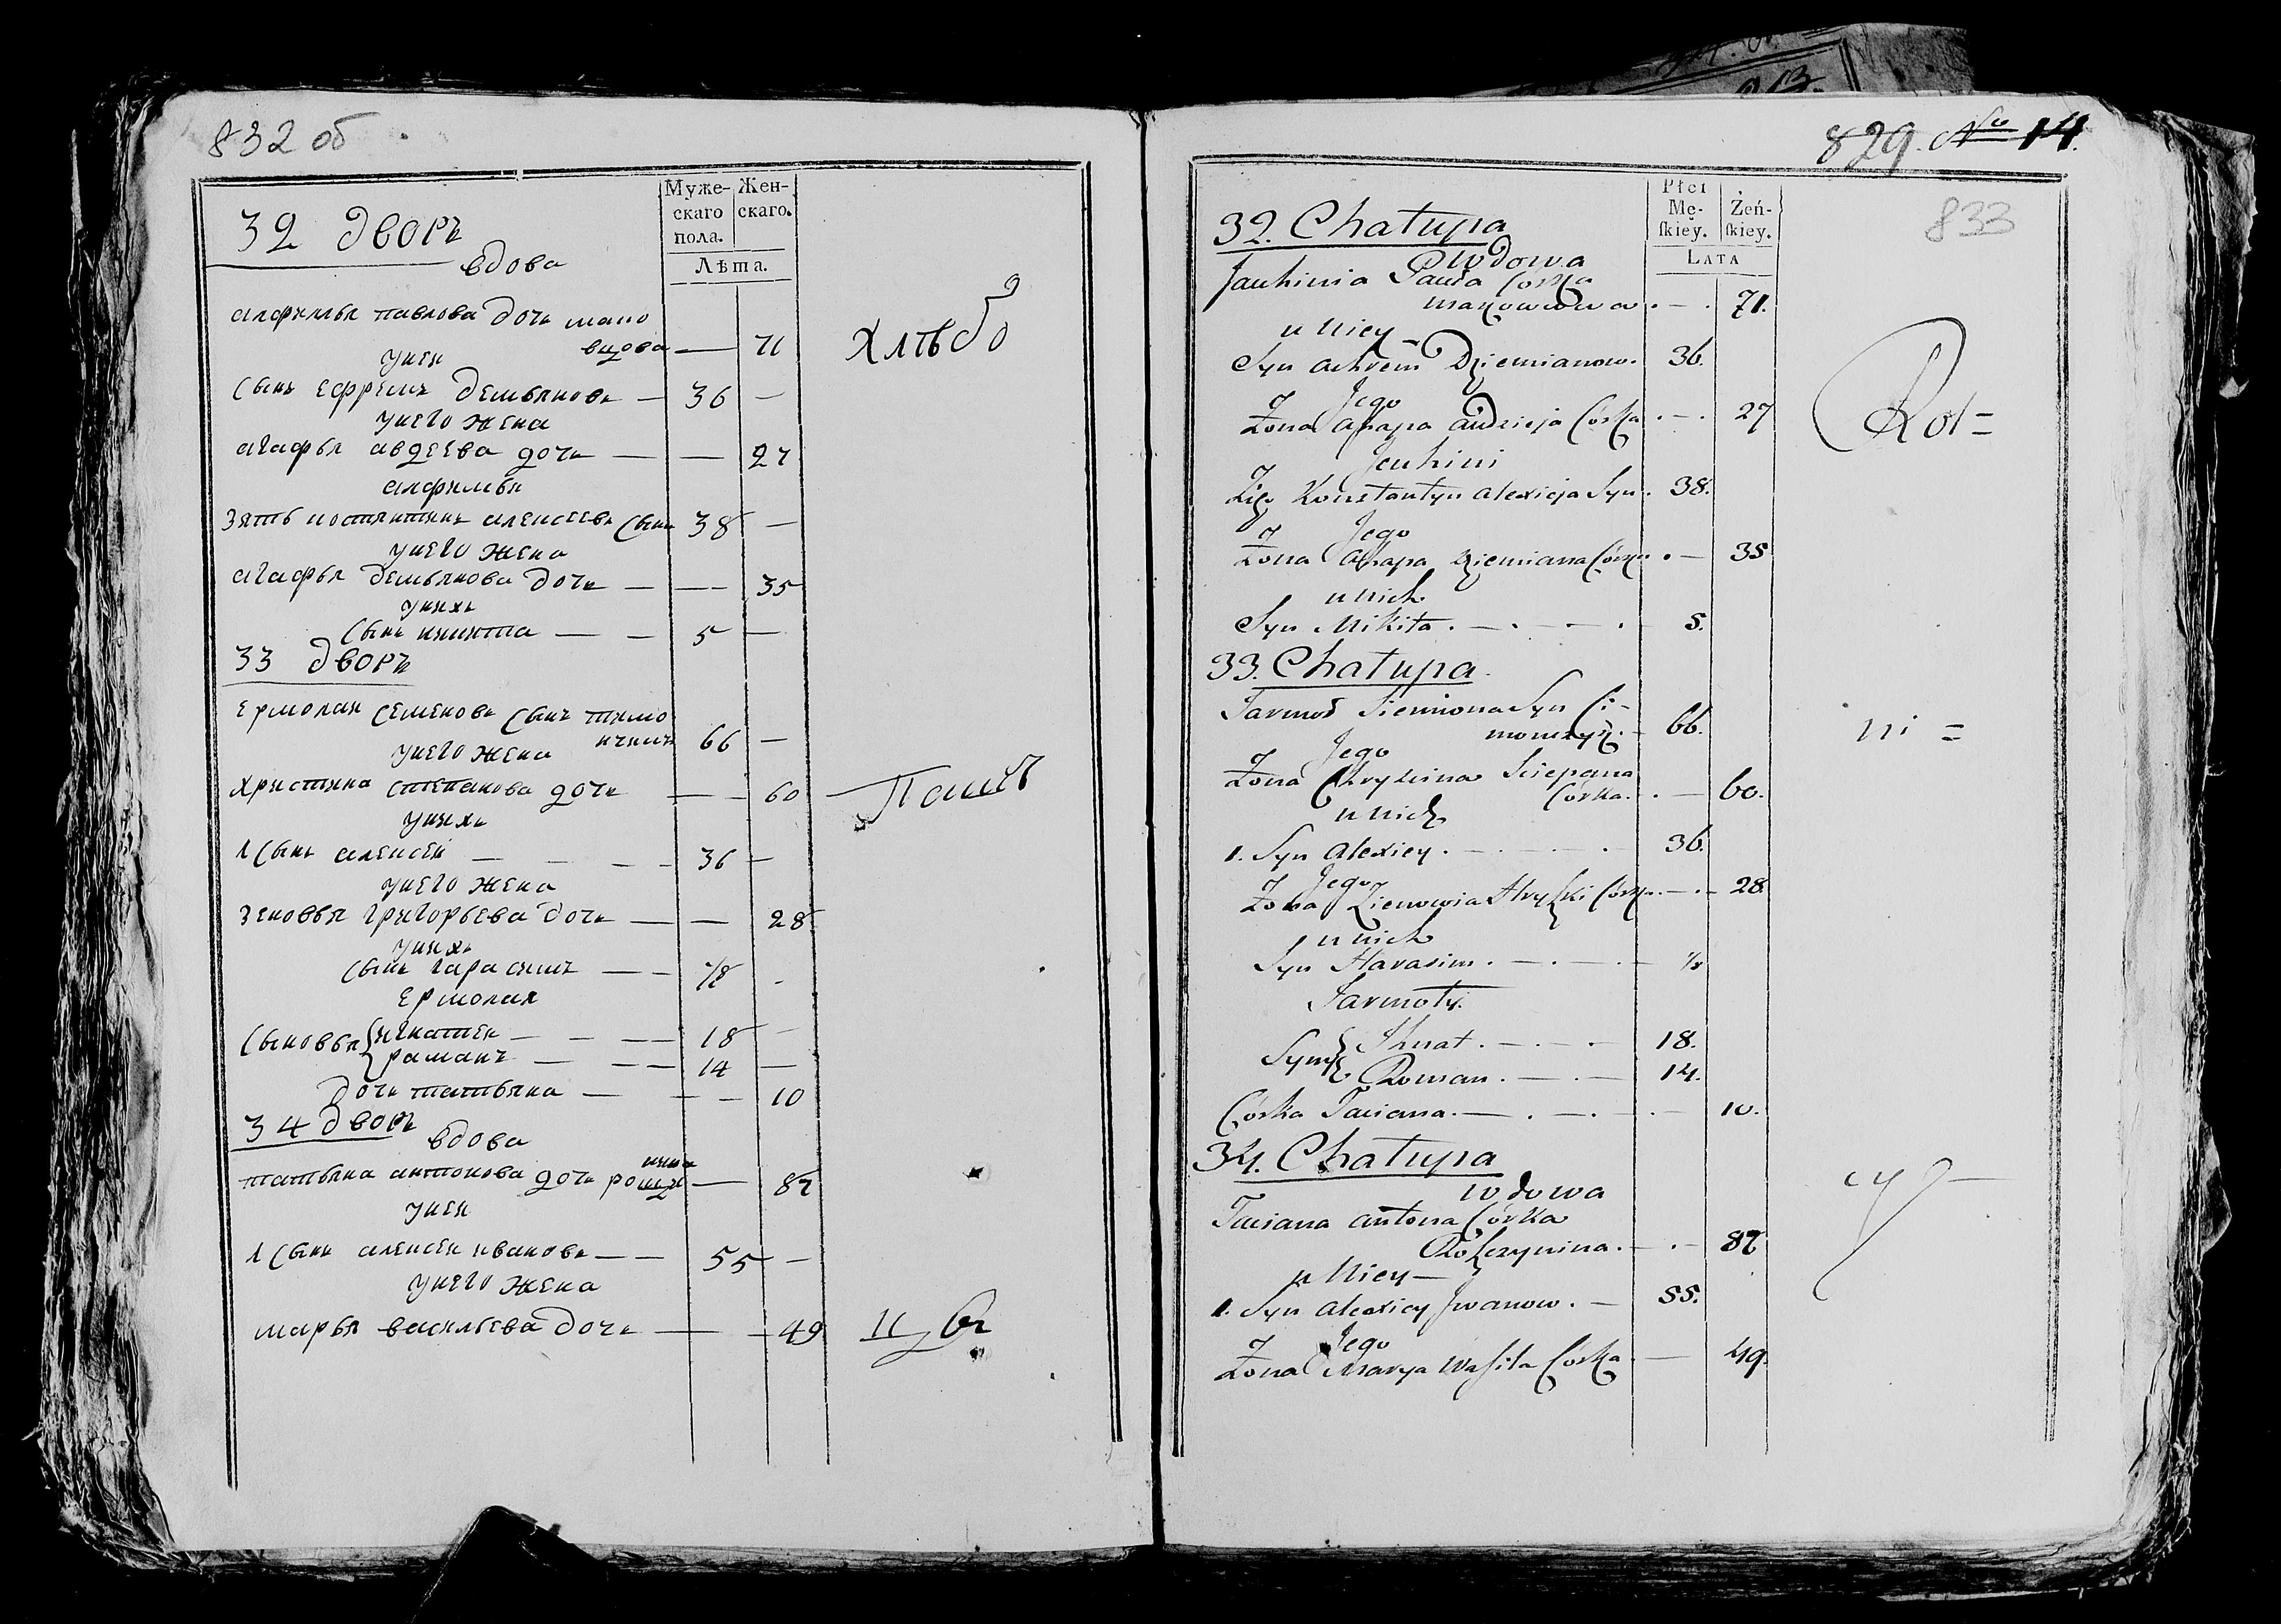 832 об
Муже-
скаго
пола.
Жен-
скаго.
Лѣта.
32 дворъ
вдова
павлова дочь мако
вцова — 71
у неи
сынъ ефремъ демьяновъ — 36 —
у него жена
агафья авдеева дочь — — 27
зять костянтинъ алексеевъ сынъ 38 —
у него жена
агафья демьянова дочь — — 35
у нихъ
сынъ никита — — 5 —
33 дворъ
ермолаи семеновъ сынъ тимо
66 —
у него жена
христина степанова дочь — — 60
у нихъ
1 сынъ алексеи — — — 36 —
у него жена
зеновья григорьева дочь — — 28
у нихъ
сынъ гарасимъ — —
ермолая
сыновья игнатеи — — — 18 —
раманъ — — — 14 —
дочь татьяна — — — 10
34 дворъ
вдова
татьяна антонова дочь — 87
у неи
1 сынъ алексеи ивановъ — — 55 —
у него жена
марья васильева дочь — — 49
хлѣбо
Пашъ
829. No 14.
833
Płci
Mę-
ſkiey.
Żeń-
ſkiey.
Lata
32. Chałupa
Wdowa
Jauhinia Pauła Córka
71.
u Niey
Syn Achrem Dziemianow. 36.
Jego
Żona Ahapa Audzieja Córka . — . 27
Jeuhini
Zięć Konstantyn Alexieja Syn. 38.
Jego
Żona Ahapa Dziemiana Córka . — 35
u Nich
Syn Mikita . — . — . 5.
33. Chałupa
Jarmoł Siemiona Syn Ci-
66.
Jego
Żona Chrystina Sciepana
Córka. . — 60.
u Nich
1. Syn Alexiey . — . — . 36.
Jego
Żona Zienowia Hryszki Córka. — . — 28.
u Nich
Syn Harasim . — . — . —
Jarmoły.
Syny Ihnat . — . — . 18.
Roman . — . — 14.
Córka Taciana. — . — . — 10.
34. Chałupa
Wdowa
Taciana Antona Córka
— . — 87
u Niey —
1. Syn Alexiey Iwanow . — 55.
Jego
Żona Marya Wasila Córka — 49.
Rol=
ni =
cy